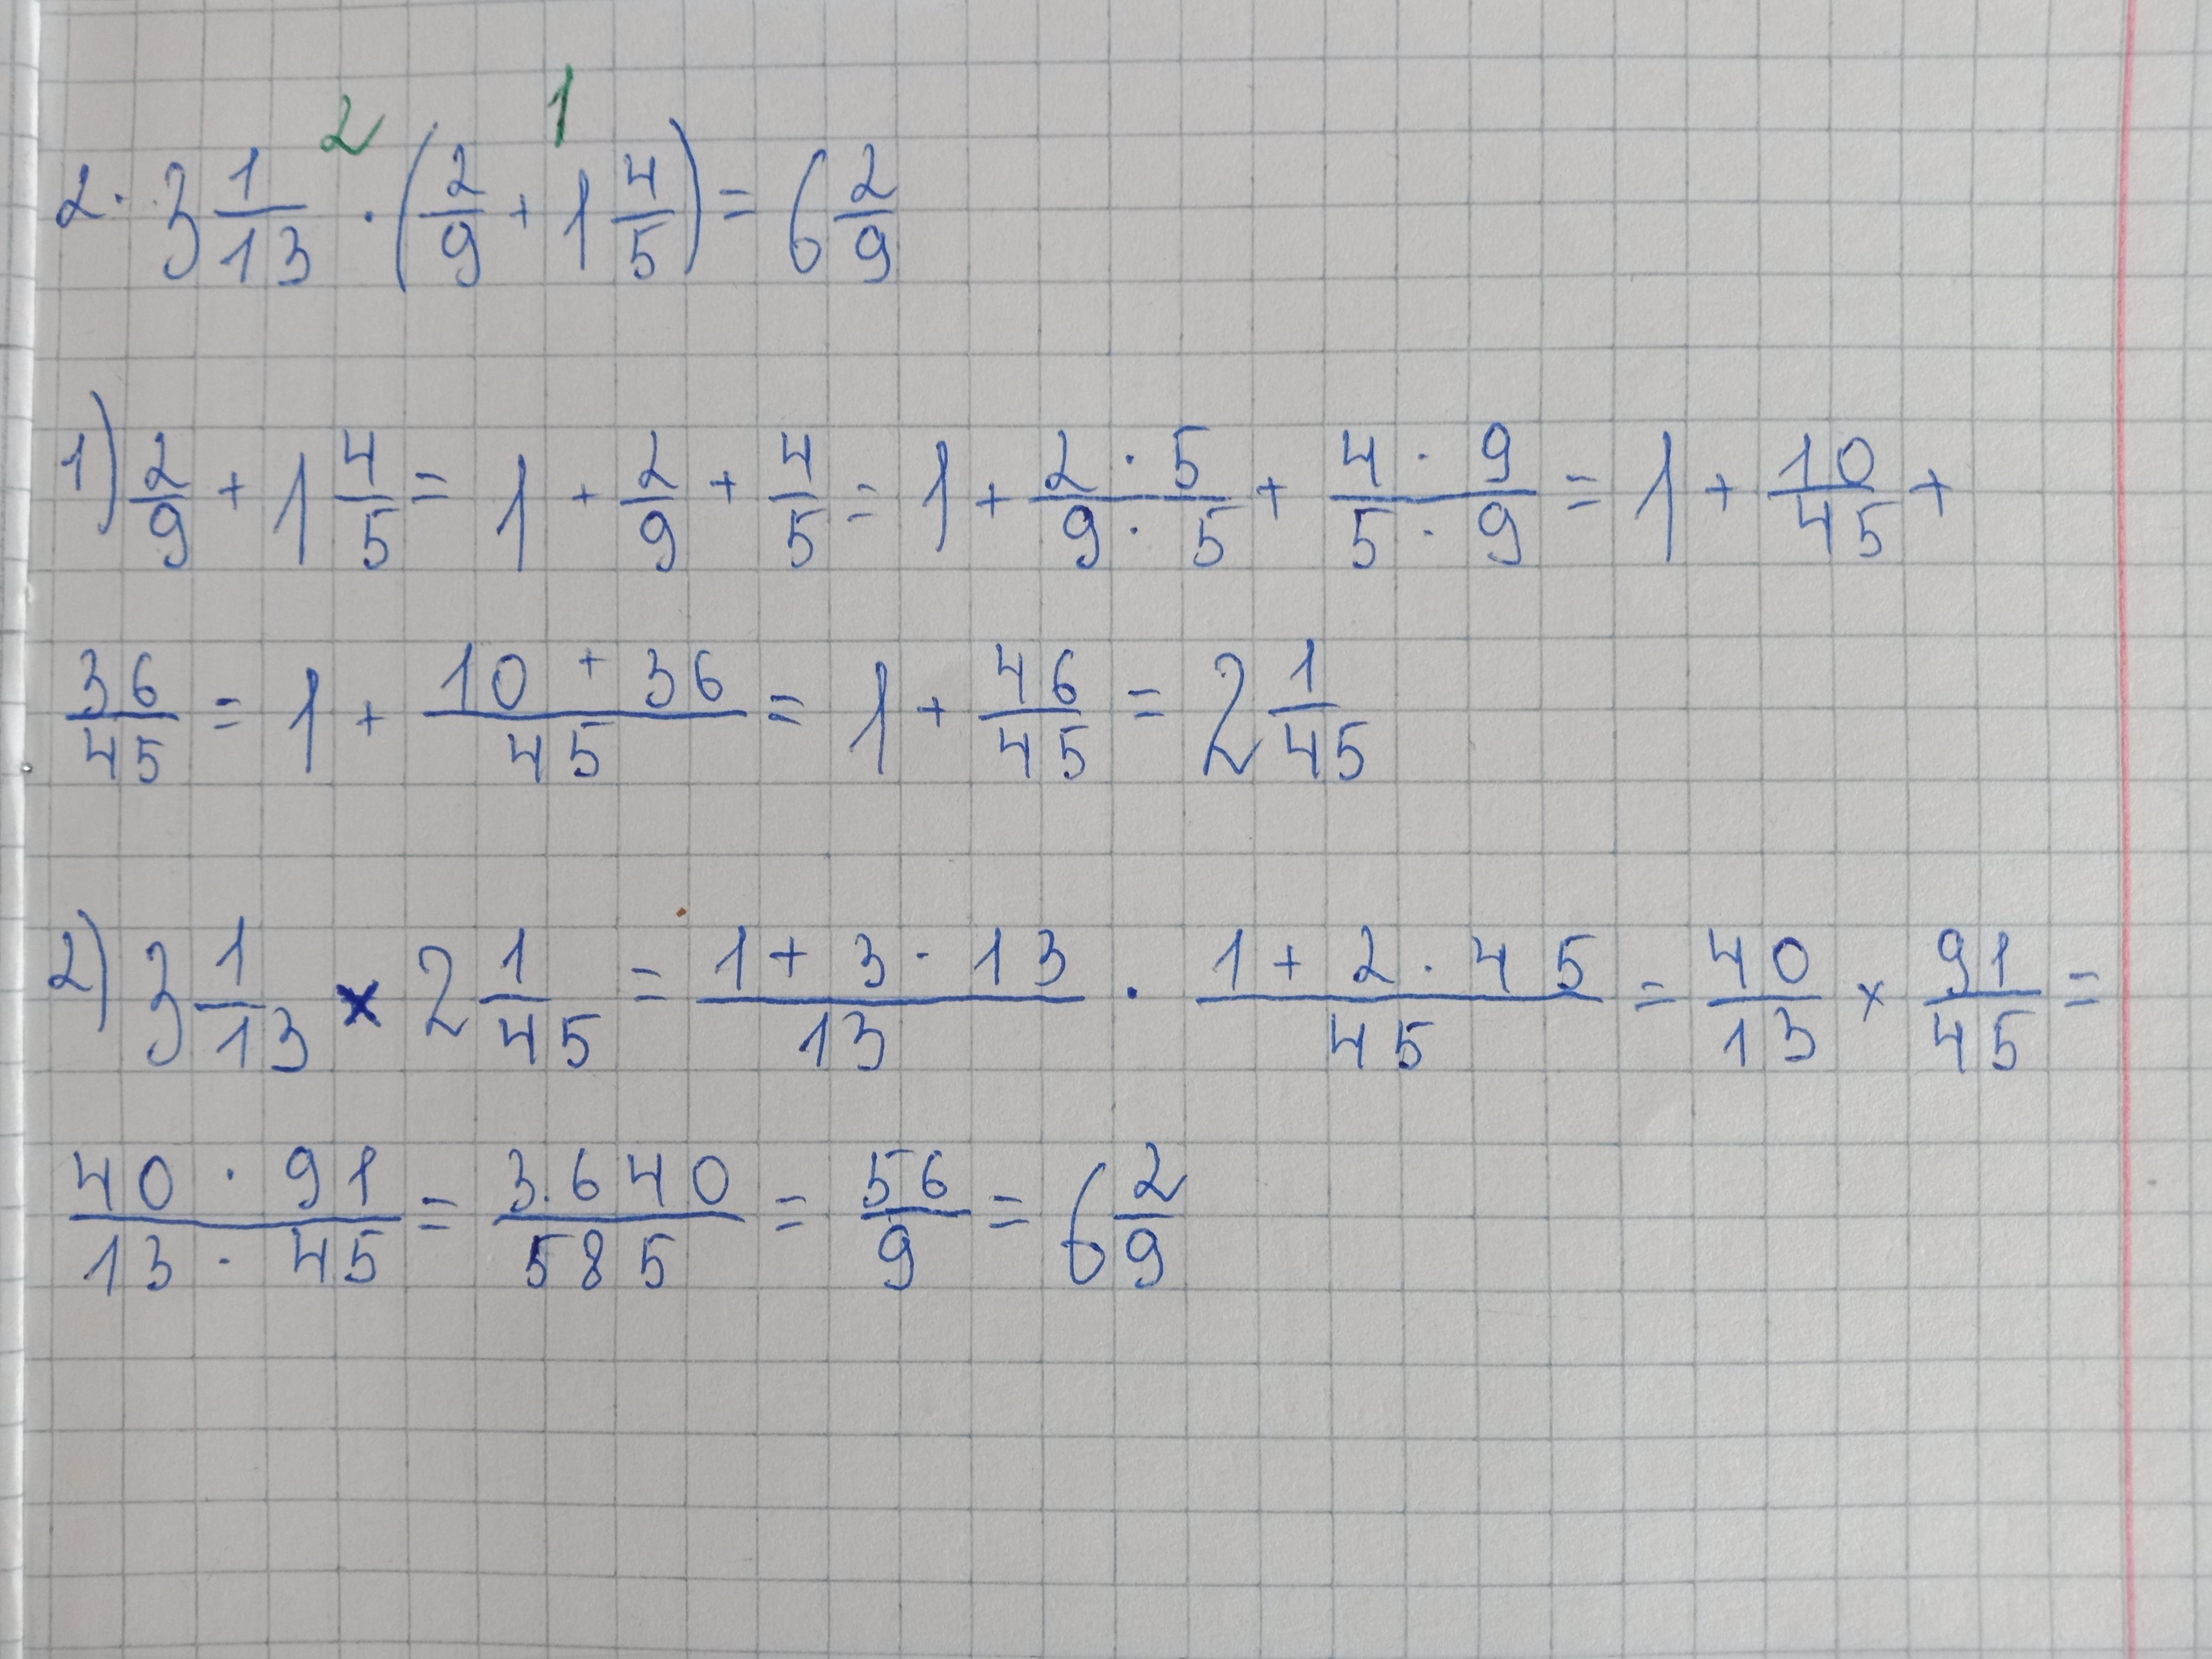 2 1
2. 3 1/13 · (2/9 + 1 4/5) = 6 2/9
1) 2/9 + 1 4/5 = 1 + 2/9 + 4/5 = 1 + (2 · 5)/(9 · 5) + (4 · 9)/(5 · 9) = 1 + 10/45 +
36/45 = 1 + (10 + 36)/45 = 1 + 46/45 = 2 1/45
2) 3 1/13 × 2 1/45 = (1 + 3 · 13)/13 · (1 + 2 · 45)/45 = 40/13 × 91/45 =
(40 · 91)/(13 · 45) = 3.640/585 = 56/9 = 6 2/9